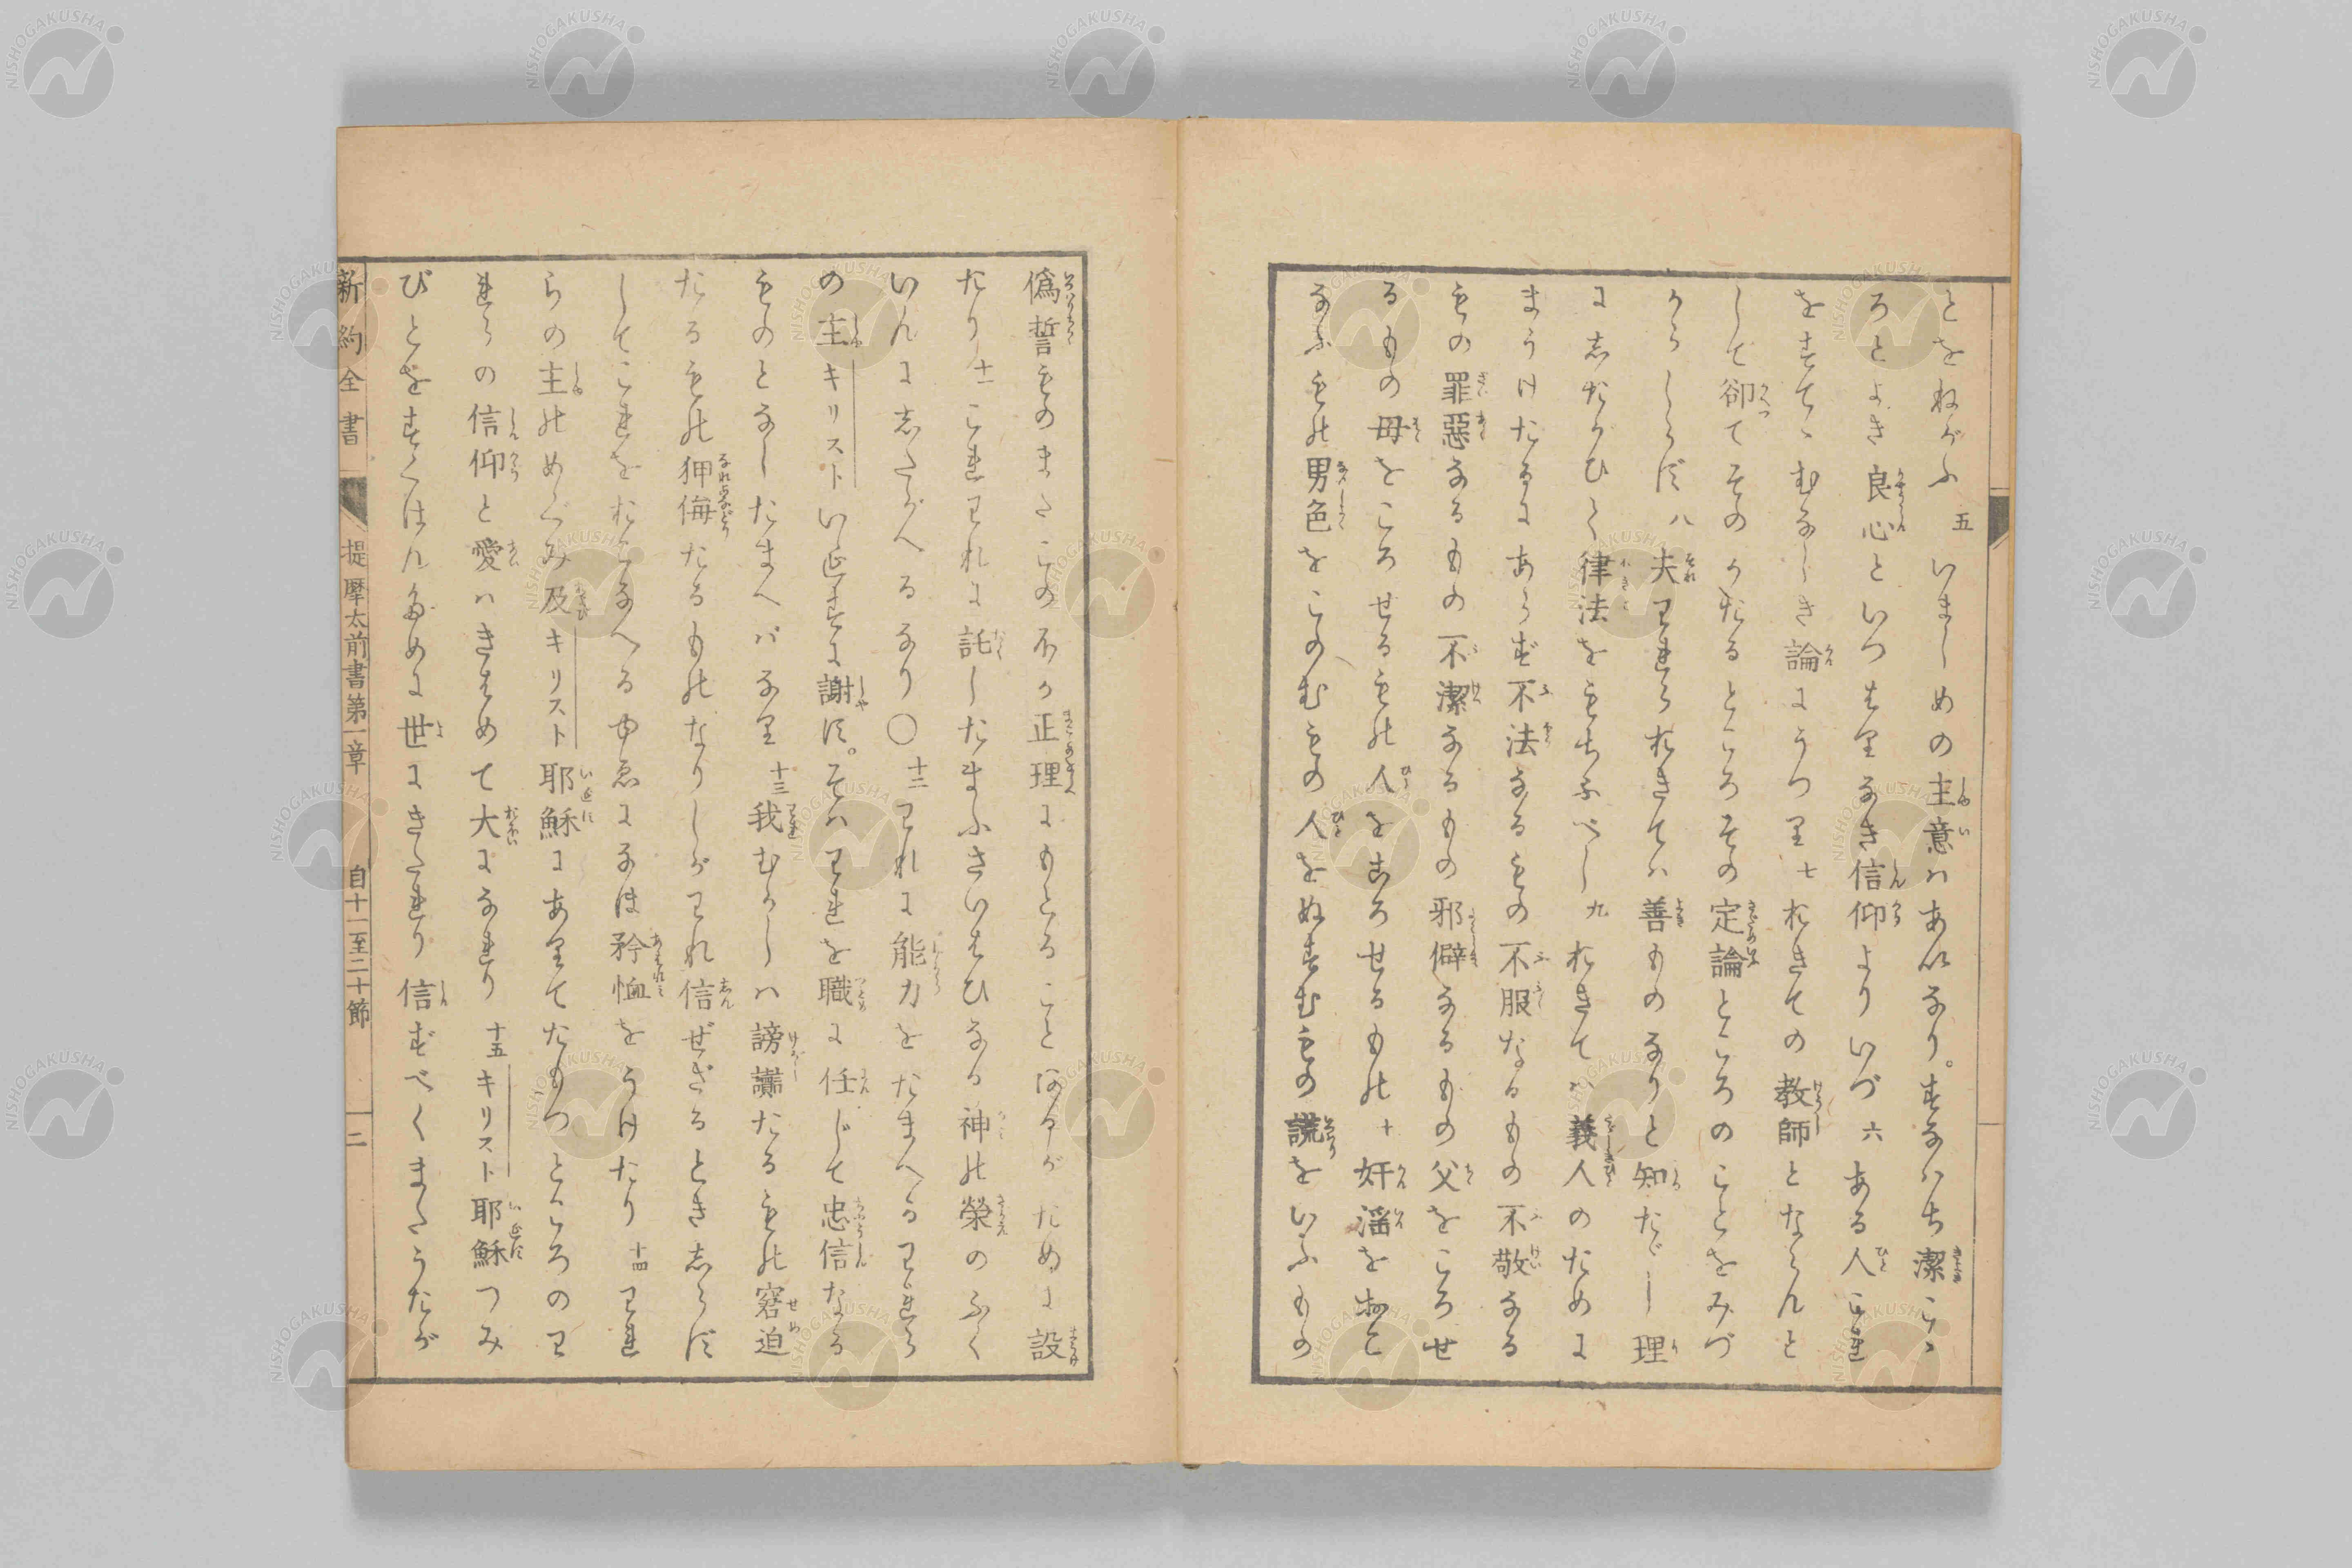 とをねがふ 五 いましめの主意ハあいなり。すなハち潔こゝ
ろとよき良心といつはりなき信仰よりいづ 六 ある人これ
をすてゝむなしき論にうつり 七 おきての教師とならんと
して卻てそのかたるところその定論ところのことをみづ
からしらず 八 夫われらおきてハ善ものなりと知たゞし理
にしたがひて律法をもちふべし 九 おきてハ義人のために
まうけたるにあらず不法なるもの不服なるもの不敬なる
もの罪惡なるもの不潔なるもの邪僻なるもの父をころせ
るもの母をころせるもの人をころせるもの 十 奸滛をおこ
なふもの男色をこのむもの人をぬすむもの謊をいふもの
偽誓ものまたこの外の正理にもとることあるがために設
たり 十一 これわれに託したまふさいはひなる神の榮のふく
いんにしたがへるなり〇 十二 われに能力をたまへるわれら
の主キリストい𛀁すに謝す。そハわれを職に任じて忠信なる
ものとなしたまへバなり 十三 我むかしハ謗讟たるもの窘迫
たるもの狎侮たるものなりしがわれ信ぜざるときしらず
してこれをおこなへるゆゑになほ矜恤をうけたり 十四 われ
らの主のめぐみ及キリスト耶穌にありてたもつところのわ
れらの信仰と愛ハきはめて大になれり 十五 キリスト耶穌つみ
びとをすくはんために世にきたれり信ずべくまたうたが
新約全書 提摩太前書第一章 自十一至二十節 二